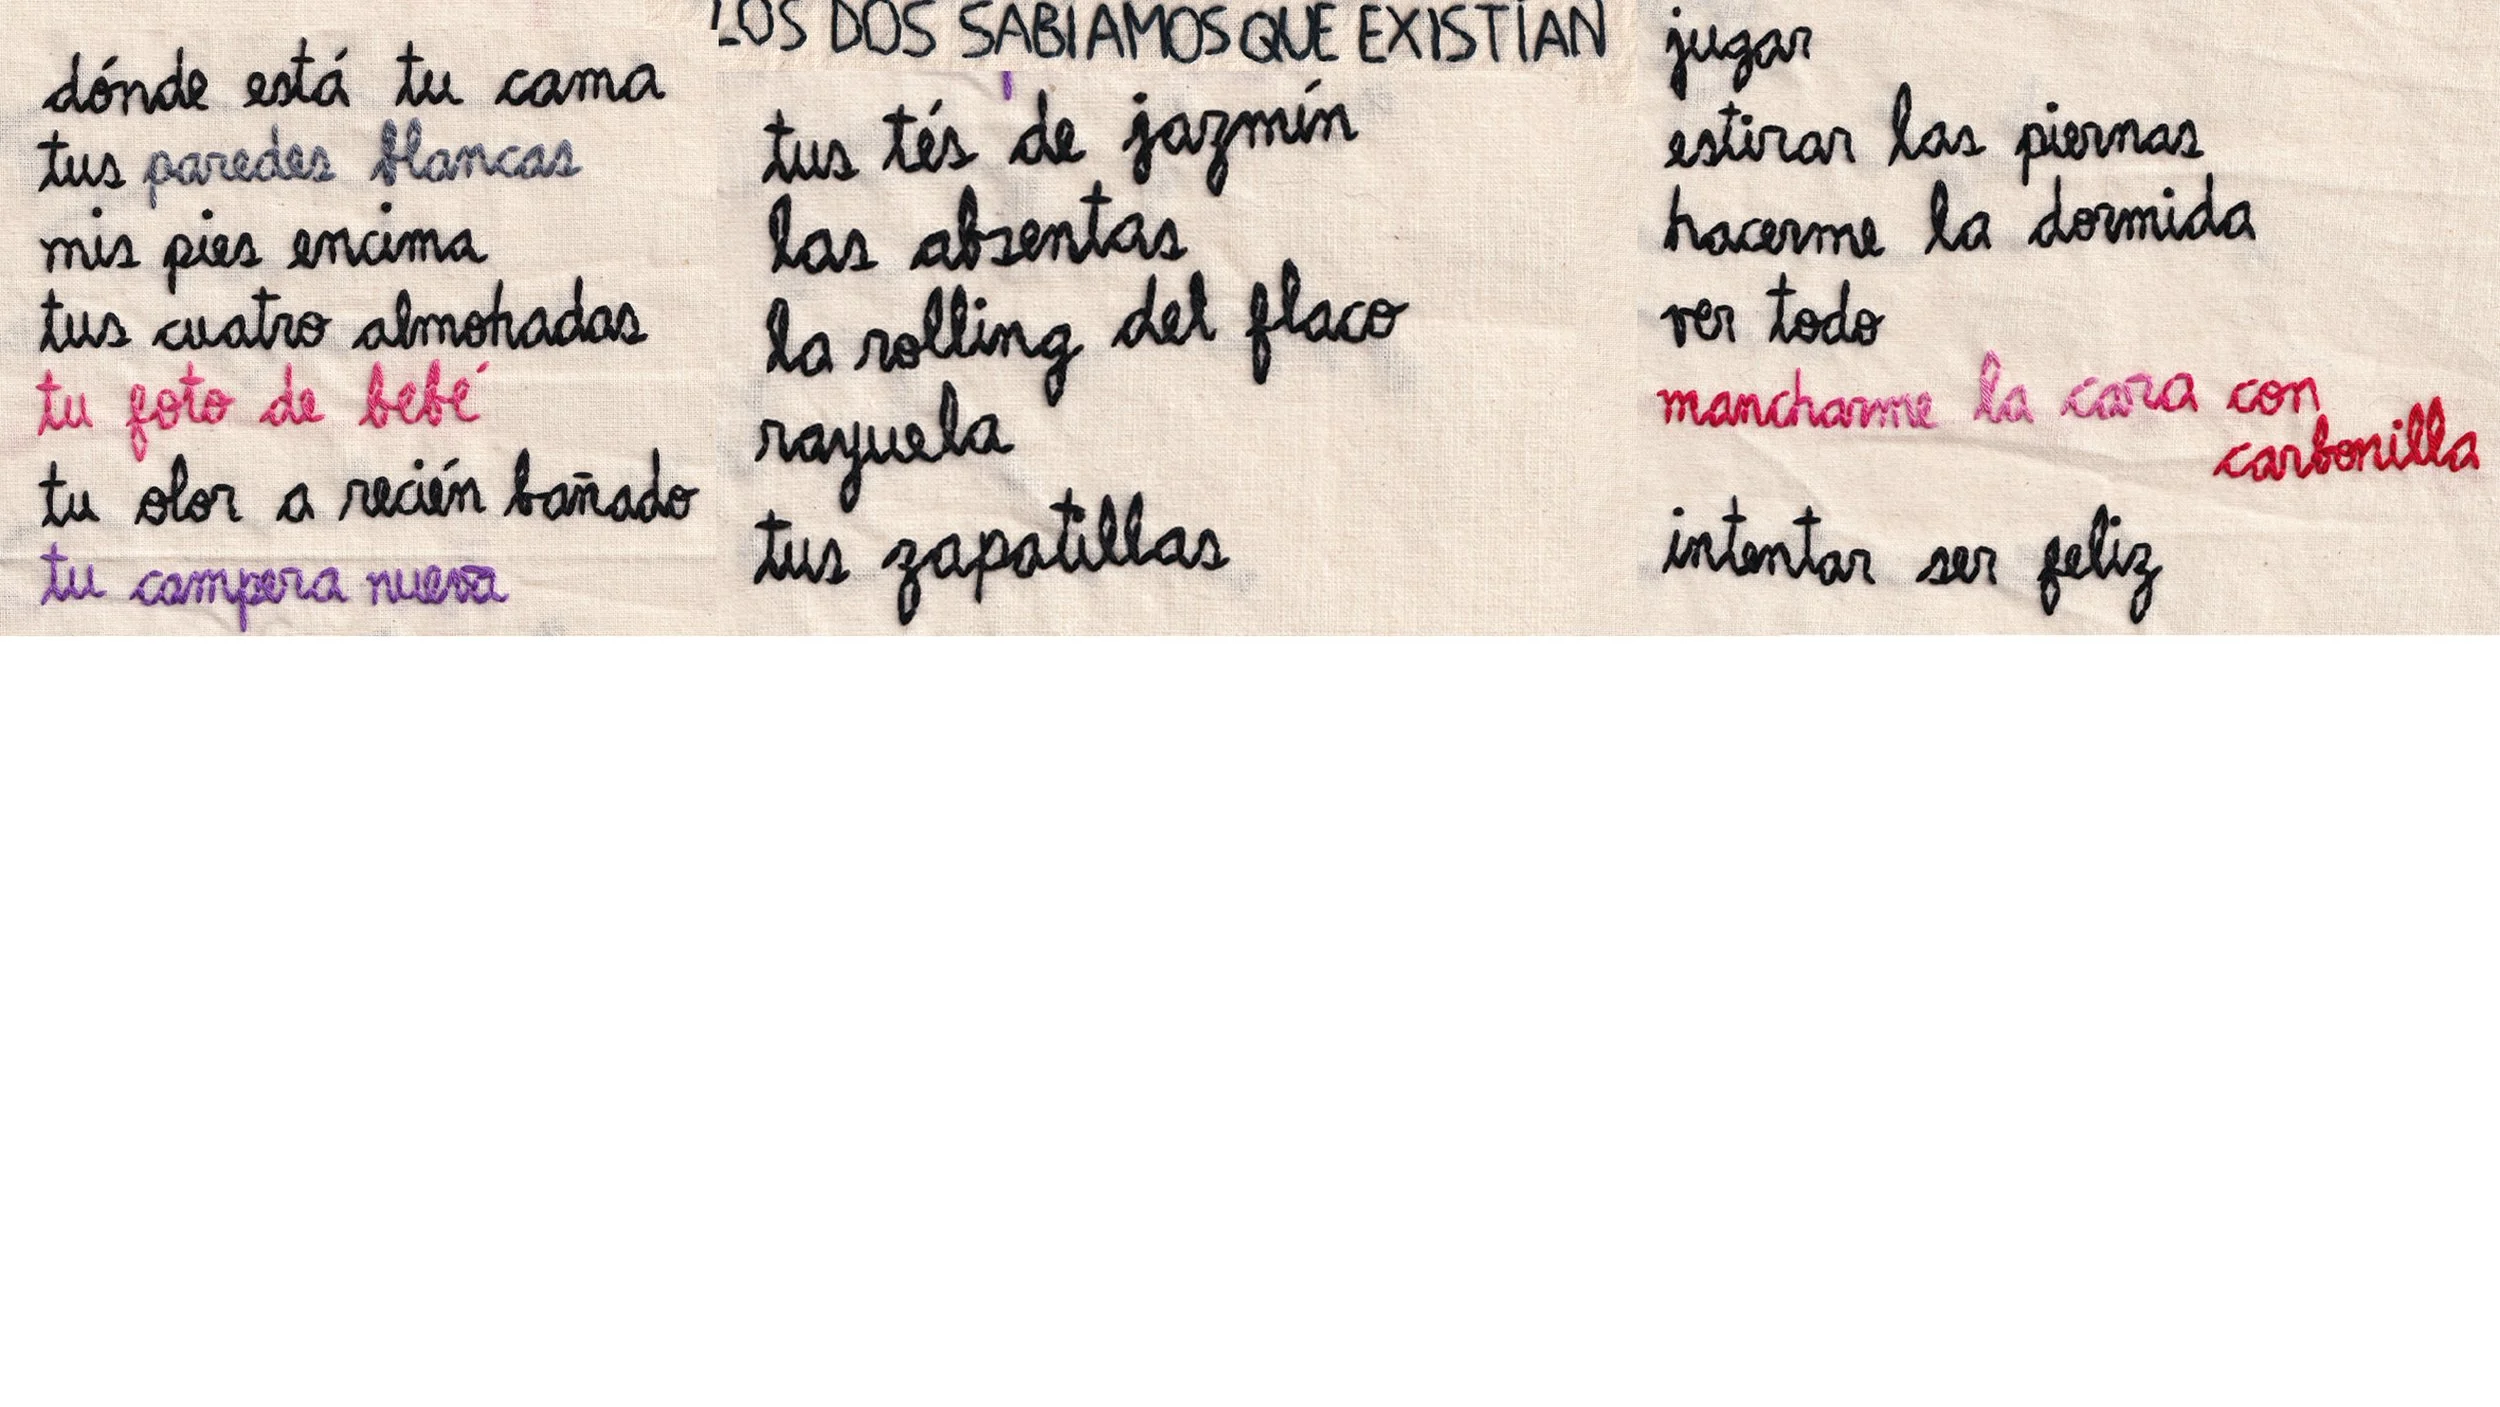 dónde está tu cama
tus paredes blancas
mis pies encima
tus cuatro almohadas
tu foto de bebé
tu olor a recién bañado
tu campera nueva
LOS DOS SABIAMOS QUE EXISTÍAN
tus tés de jazmín
las absentas
la rolling del flaco
rayuela
tus zapatillas
jugar
estirar las piernas
hacerme la dormida
ver todo
mancharme la cara con
carbonilla
intentar ser feliz